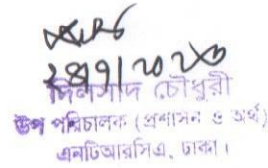 দিলসাদ চৌধুরী
উপ পরিচালক (প্রশাসন ও অর্থ)
এনটিআরসিএ, ঢাকা।